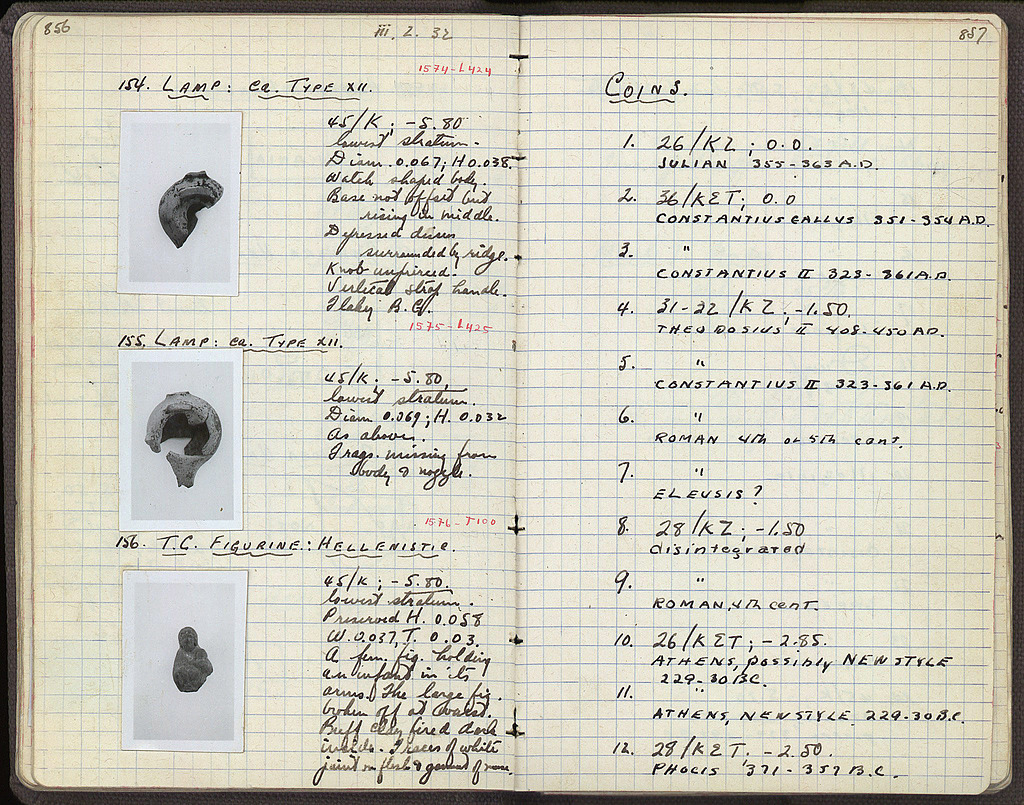 856
iii. 2. 32
1574-L424
154. LAMP: ca. TYPE XII.
45/K; -5.80
lowest stratum.
Diam. 0.067; H 0.038.
Watch shaped body.
Base not offset but
rising in middle.
Depressed discus
surrounded by ridge.
Knob unpierced.
Vertical strap handle.
Flaky B.G.
1575-L425
155. LAMP: ca. TYPE XII.
45/K; -5.80,
lowest stratum.
Diam 0.069; H. 0.032
As above.
Frags. missing from
body & nozzle.
1576-T100
156. T.C. FIGURINE: HELLENISTIC.
45/K; -5.80.
lowest stratum.
Preserved H. 0.058
W. 0.037, T. 0.03.
A fem. fig. holding
an infant in its
arms. The large fig.
broken off at waist.
Buff clay fired dark
inside. Traces of white
on flesh & garment of nurse.
857
COINS.
1. 26/KZ; 0.0.
JULIAN 355-363 A.D.
2. 36/KΣT; 0.0
CONSTANTIUS GALLUS 351-354 A.D.
3. "
CONSTANTIUS II 323-361 A.D.
4. 31-22/KZ; -1.50.
THEODOSIUS II 408-450 AD.
5. "
CONSTANTIUS II 323-361 A.D.
6. "
ROMAN 4th or 5th cent.
7. "
ELEUSIS?
8. 28/KZ; -1.50
disintegrated
9. "
ROMAN, 4th cent.
10. 26/KΣT; -2.85.
ATHENS, possibly NEW STYLE
229-30 B.C.
11. "
ATHENS, NEW STYLE, 229-30 B.C.
12. 28/KΣT. -2.50.
PHOCIS 371-357 B.C.